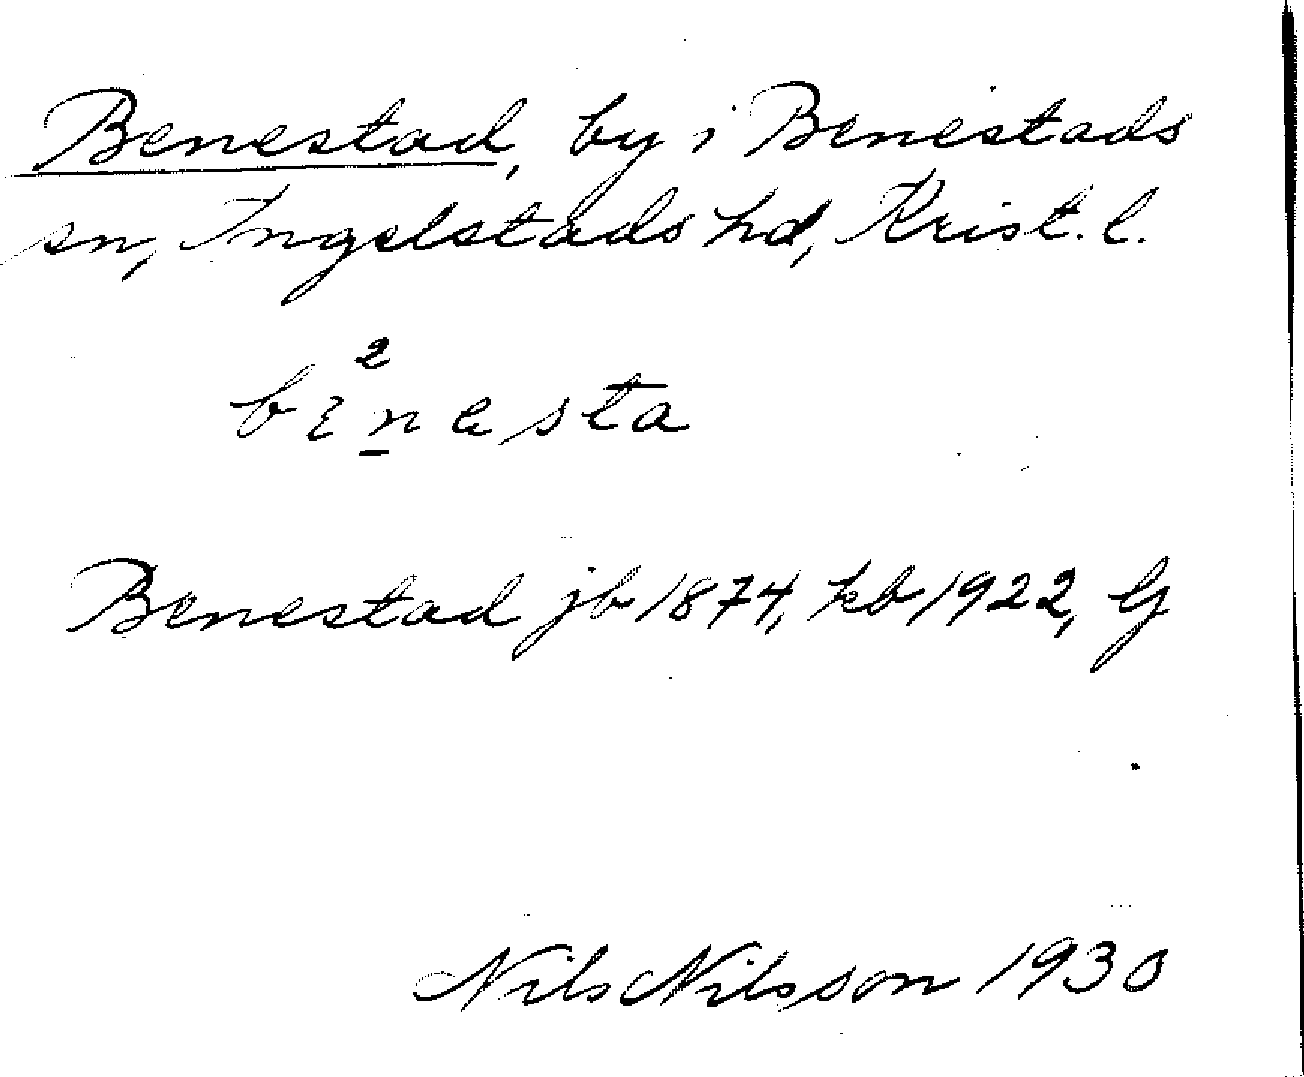 Benestad, by i Benestads
sn, Ingelstads hd, Krist. l.
bɛ²n̲ɐsta
Benestad jb 1874, kb 1922, G
Nils Nilsson 1930